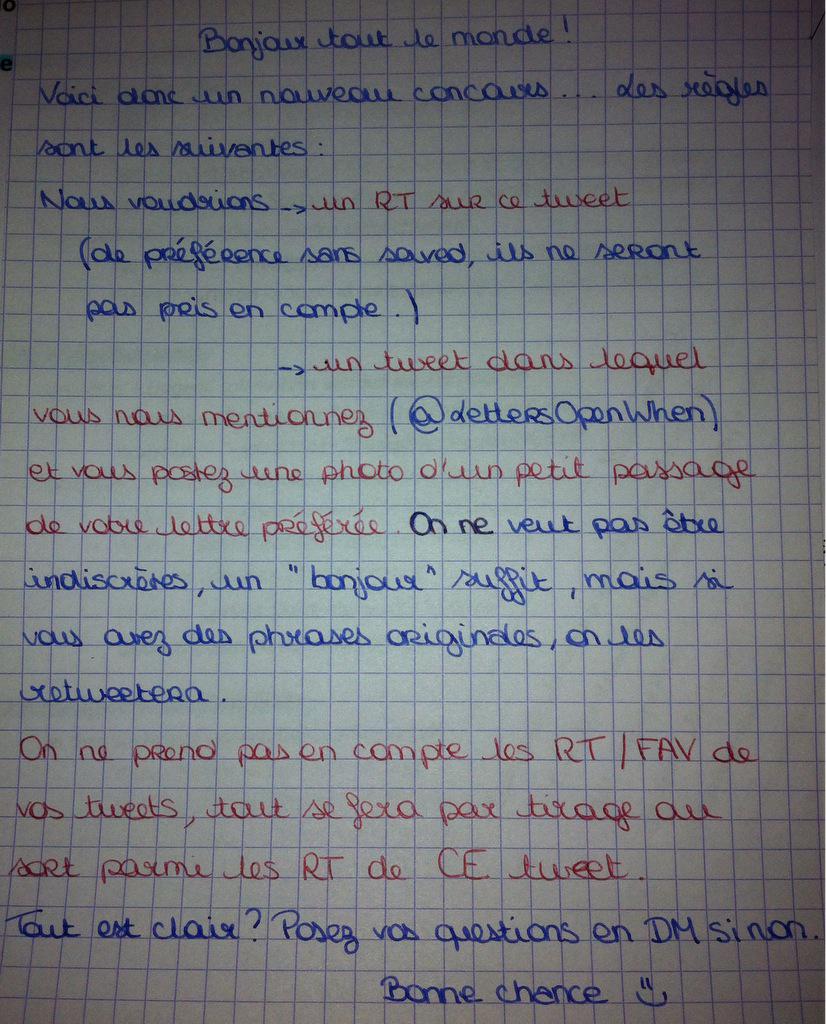 Bonjour tout le monde !
Voici donc un nouveau concours... les règles
sont les suivantes :
Nous voudrions -> un RT sur ce tweet
(de préférence sans saved, ils ne seront
pas pris en compte.)
-> un tweet dans lequel
vous nous mentionnez (@LettersOpenWhen)
et vous postez une photo d'un petit passage
de votre lettre préférée. On ne veut pas être
indiscrètes, un "bonjour" suffit, mais si
vous avez des phrases originales, on les
retweetera.
On ne prend pas en compte les RT/FAV de
vos tweets, tout se fera par tirage au
sort parmi les RT de CE tweet.
Tout est clair ? Posez vos questions en DM sinon.
Bonne chance